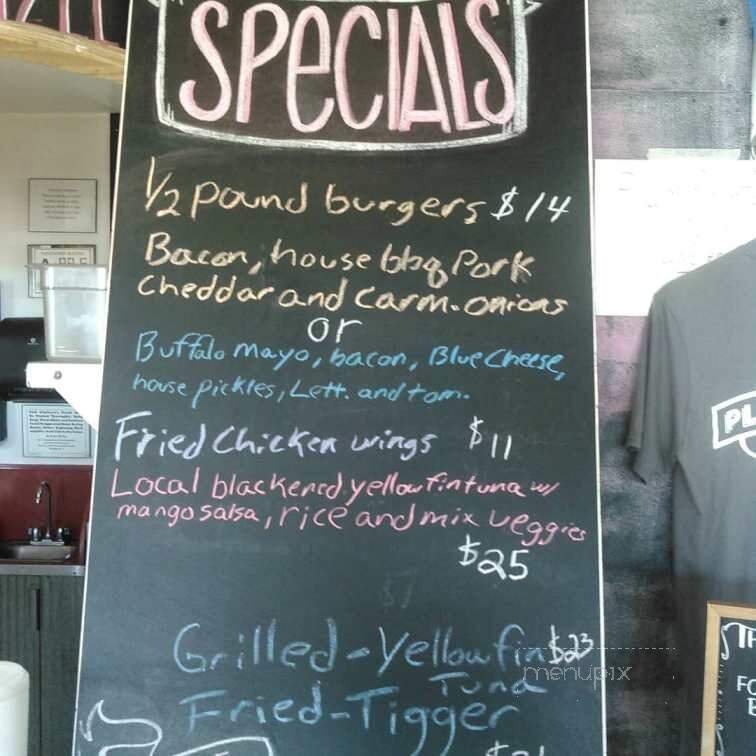 SPECIALS
1/2 pound burgers $14
Bacon, house bbq Pork
cheddar and carm. onions
or
Buffalo mayo, bacon, Blue cheese,
house pickles, Lett. and tom.
Fried Chicken wings $11
Local blackened yellowfin tuna w/
mango salsa, rice and mix veggies
$25
Grilled - Yellowfin $23
Tuna
menupix
Fried - Tigger
PL